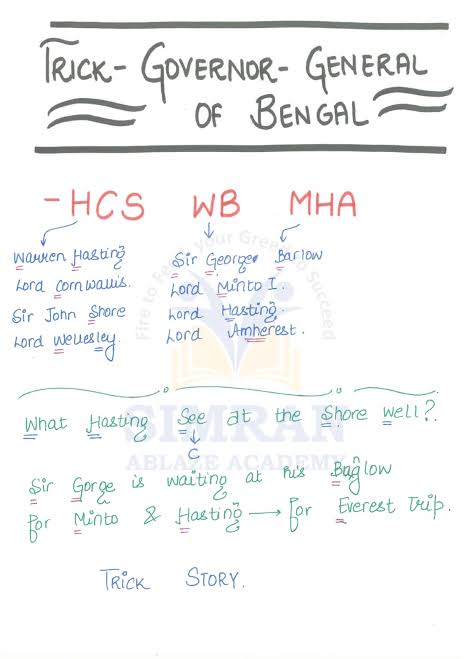 TRICK - GOVERNOR - GENERAL
OF BENGAL
- HCS WB MHA
Warren Hasting
Lord Cornwallis.
Sir John Shore
Lord Wellesley.
Sir George Barlow
Lord Minto I.
Lord Hasting.
Lord Amherest.
What Hasting See at the Shore well?
C
Sir Gorge is waiting at his Baglow
for Minto & Hasting → for Everest Trip.
TRICK STORY.
Fire to Fe your Green to Succeed
SIMRAN
ABLAZE ACADEMY